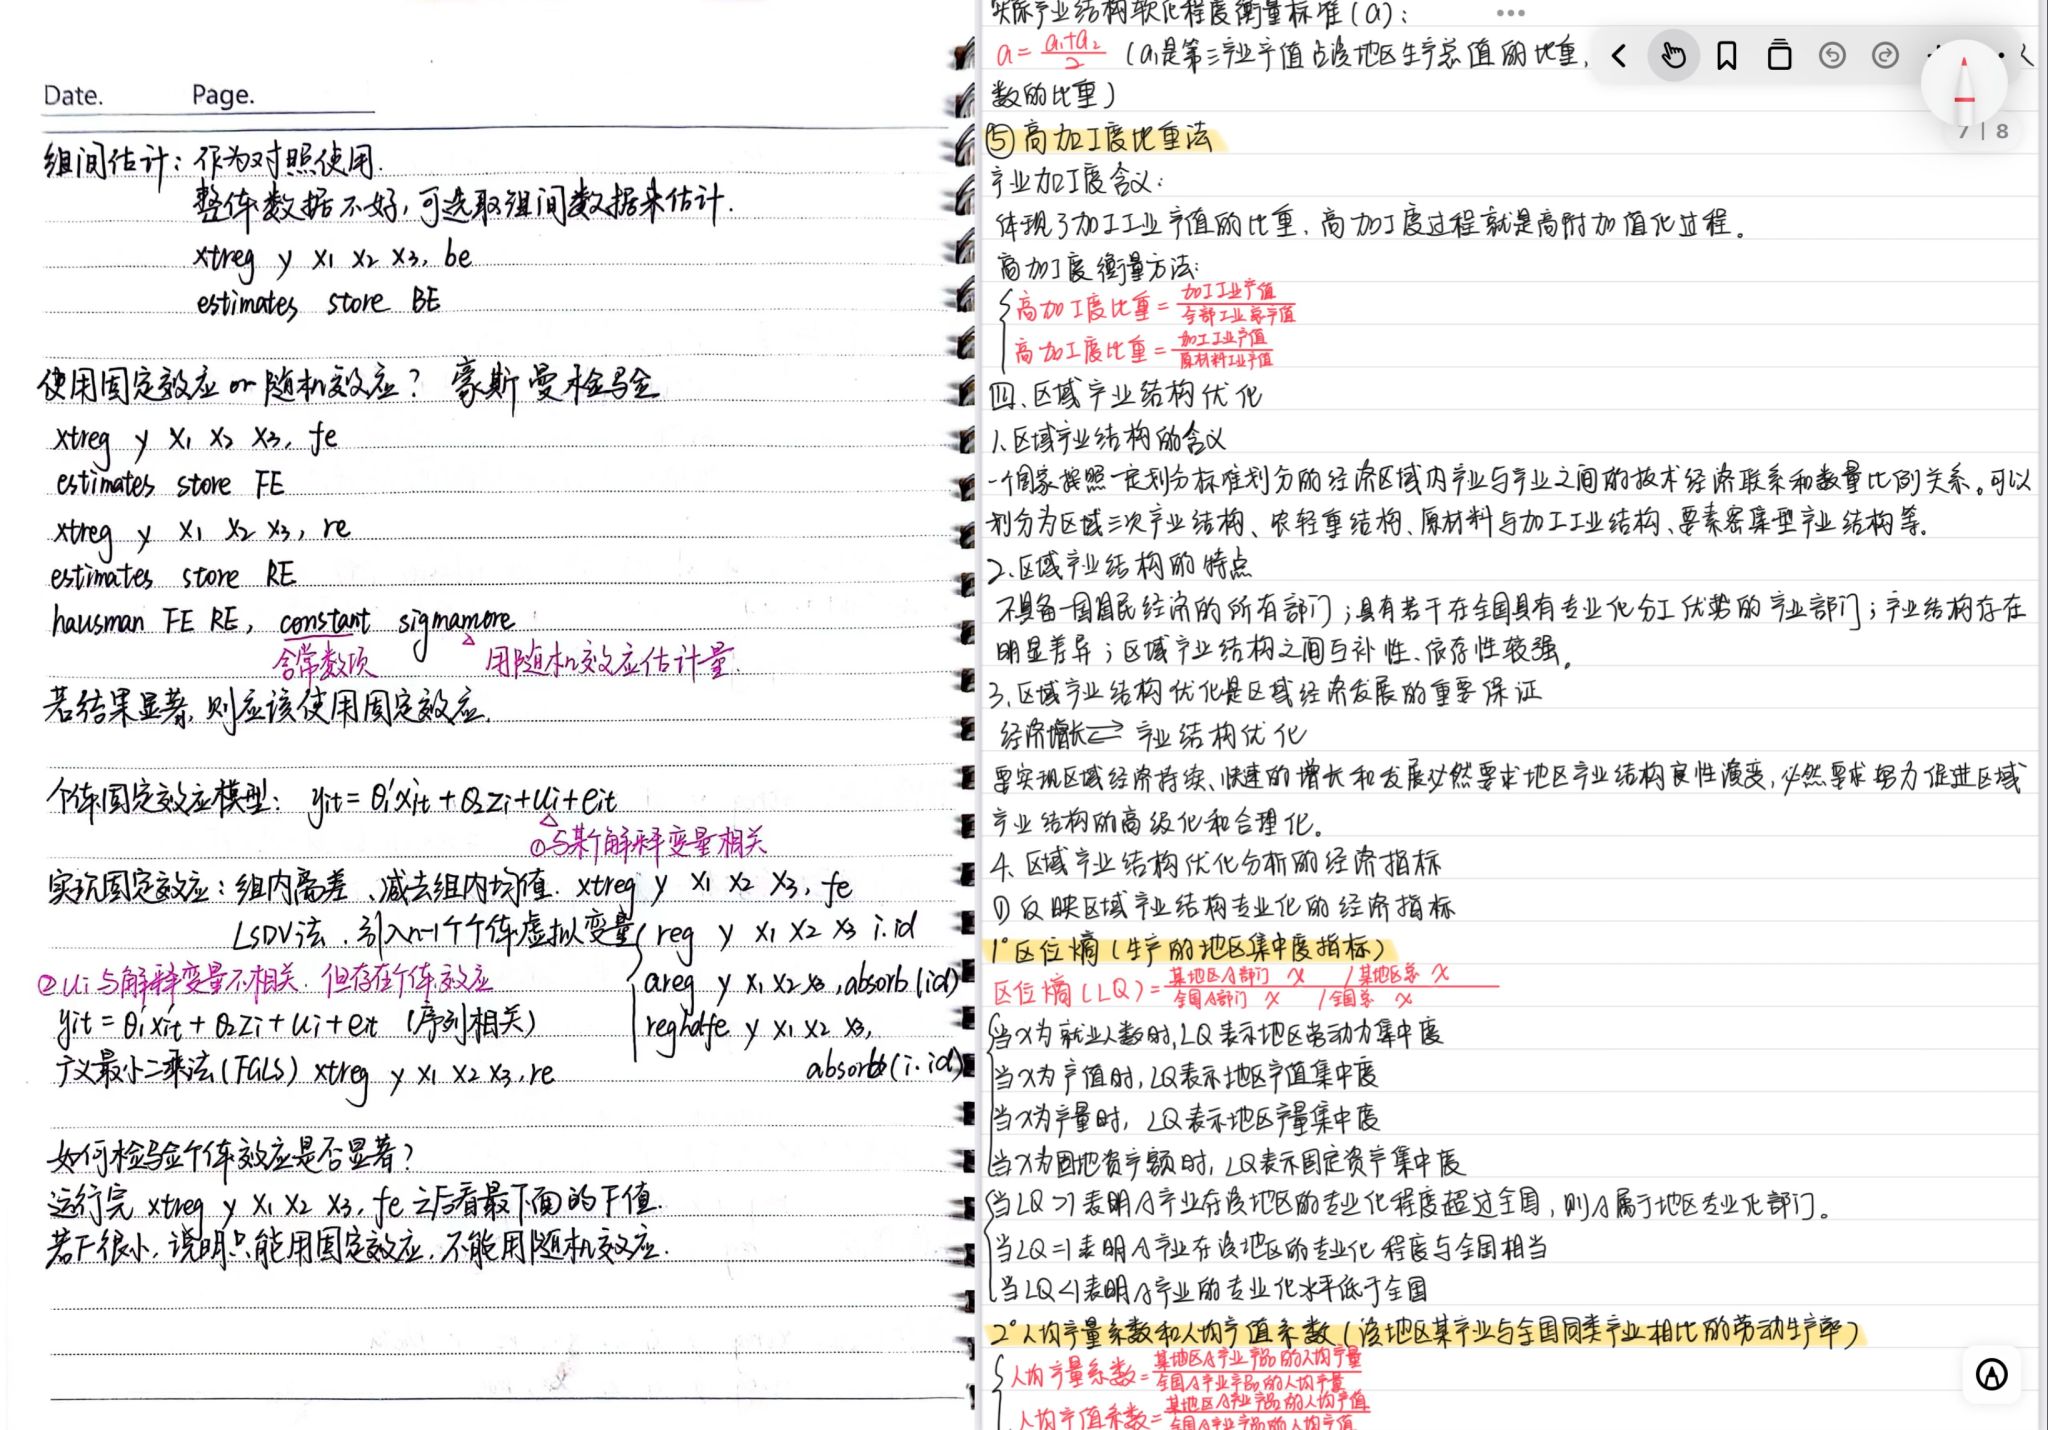 Date. Page.
组间估计：作为对照使用.
整体数据不好,可选取组间数据来估计.
xtreg y x₁ x₂ x₃, be
estimates store BE
使用固定效应 or 随机效应？ 豪斯曼检验
xtreg y x₁ x₂ x₃, fe
estimates store FE
xtreg y x₁ x₂ x₃, re
estimates store RE
hausman FE RE, constant sigmamore
含常数项 用随机效应估计量.
若结果显著,则应该使用固定效应.
个体固定效应模型： yit = θ₁'xit + θ₂zi + ui + eit
①与某个解释变量相关
实现固定效应：组内离差、减去组内均值. xtreg y x₁ x₂ x₃, fe
LSDV法、引入n-1个个体虚拟变量 reg y x₁ x₂ x₃ i.id
areg y x₁ x₂ x₃, absorb(id)
reghdfe y x₁ x₂ x₃,
absorb(i.id)
②ui与解释变量不相关、但存在个体效应
yit = θ₁'xit + θ₂zi + ui + eit (序列相关)
广义最小二乘法(FGLS) xtreg y x₁ x₂ x₃, re
如何检验个体效应是否显著？
运行完 xtreg y x₁ x₂ x₃, fe 之后看最下面的F值.
若F很小,说明只能用固定效应,不能用随机效应.
实际产业结构软化程度衡量标准(a)：
a = (a₁+a₂)/2 (a₁是第三产业产值占该地区生产总值的比重,
数的比重)
7 | 8
⑤高加工度比重法
产业加工度含义：
体现了加工工业产值的比重、高加工度过程就是高附加值化过程。
高加工度衡量方法:
高加工度比重 = 加工工业产值/全部工业总产值
高加工度比重 = 加工工业产值/原材料工业产值
四、区域产业结构优化
1.区域产业结构的含义
一个国家按照一定划分标准划分的经济区域内产业与产业之间的技术经济联系和数量比例关系。可以
划分为区域三次产业结构、农轻重结构、原材料与加工工业结构、要素密集型产业结构等。
2.区域产业结构的特点
不具备一国国民经济的所有部门；具有若干在全国具有专业化分工优势的产业部门；产业结构存在
明显差异；区域产业结构之间互补性、依存性较强。
3.区域产业结构优化是区域经济发展的重要保证
经济增长⇄产业结构优化
要实现区域经济持续、快速的增长和发展必然要求地区产业结构良性演变,必然要求努力促进区域
产业结构的高级化和合理化。
4.区域产业结构优化分析的经济指标
①反映区域产业结构专业化的经济指标
1°区位熵(生产的地区集中度指标)
区位熵(LQ) = 某地区A部门 x / 某地区总 x
全国A部门 x / 全国总 x
当x为就业人数时,LQ表示地区劳动力集中度
当x为产值时,LQ表示地区产值集中度
当x为产量时, LQ表示地区产量集中度
当x为固地资产额时, LQ表示固定资产集中度
当LQ>1表明A产业在该地区的专业化程度超过全国,则A属于地区专业化部门。
当LQ=1表明A产业在该地区的专业化程度与全国相当
当LQ<1表明A产业的专业化水平低于全国
2°人均产量系数和人均产值系数(该地区某产业与全国同类产业相比的劳动生产率)
人均产量系数 = 某地区A产业产品的人均产量/全国A产业产品的人均产量
人均产值系数 = 某地区A产业产品的人均产值/全国A产业产品的人均产值